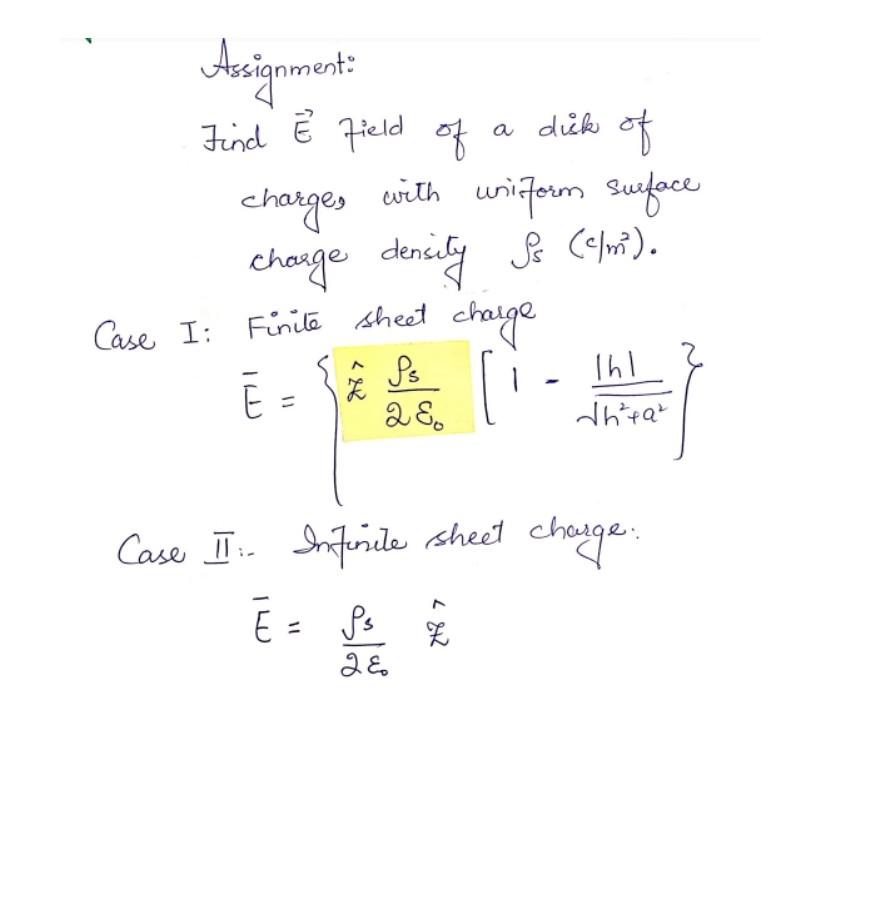 Assignment:
Find E⃗ Field of a disk of
charges with uniform surface
charge density ρs (c/m²).
Case I: Finite sheet charge
Ē = { ẑ ρs/2ε₀ [ 1 - |h|/√h²+a² }
Case II:- Infinite sheet charge:
Ē = ρs/2ε₀ ẑ